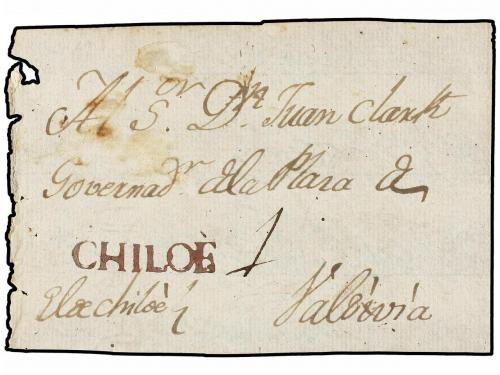 Al S.or D.n Juan Clark
Governad.r dela Plaza de
CHILOÈ 1
El de chiloè
Valdivia